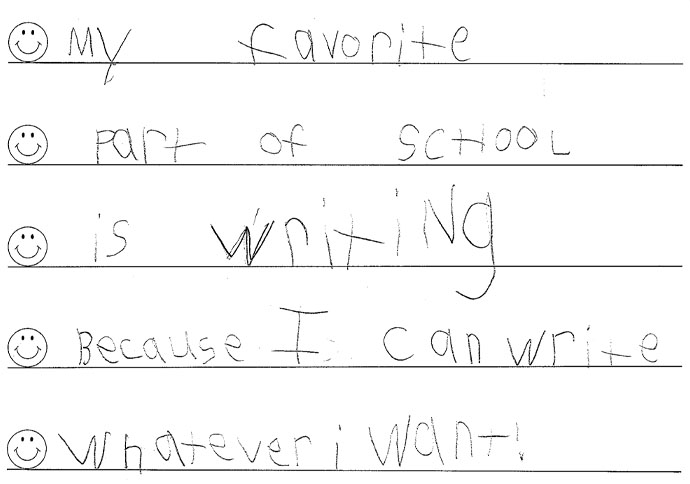 My favorite
part of SCHOOL
is writiNg
Because I can write
whatever i want!